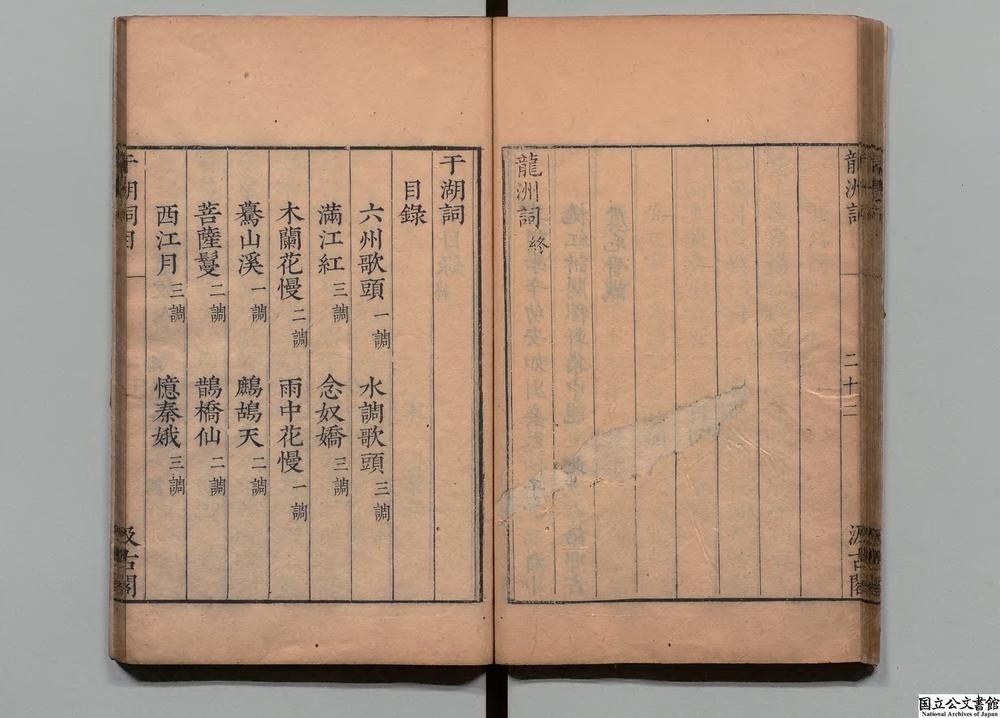 龍洲詞
汲古閣
龍洲詞 終
于湖詞
目錄
六州歌頭 一調 水調歌頭 三調
滿江紅 三調 念奴嬌 三調
木蘭花慢 二調 雨中花慢 一調
驀山溪 一調 鷓鴣天 二調
菩薩鬘 二調 鵲橋仙 二調
西江月 三調 憶秦娥 三調
于湖詞目 一 汲古閣
国立公文書館
National Archives of Japan